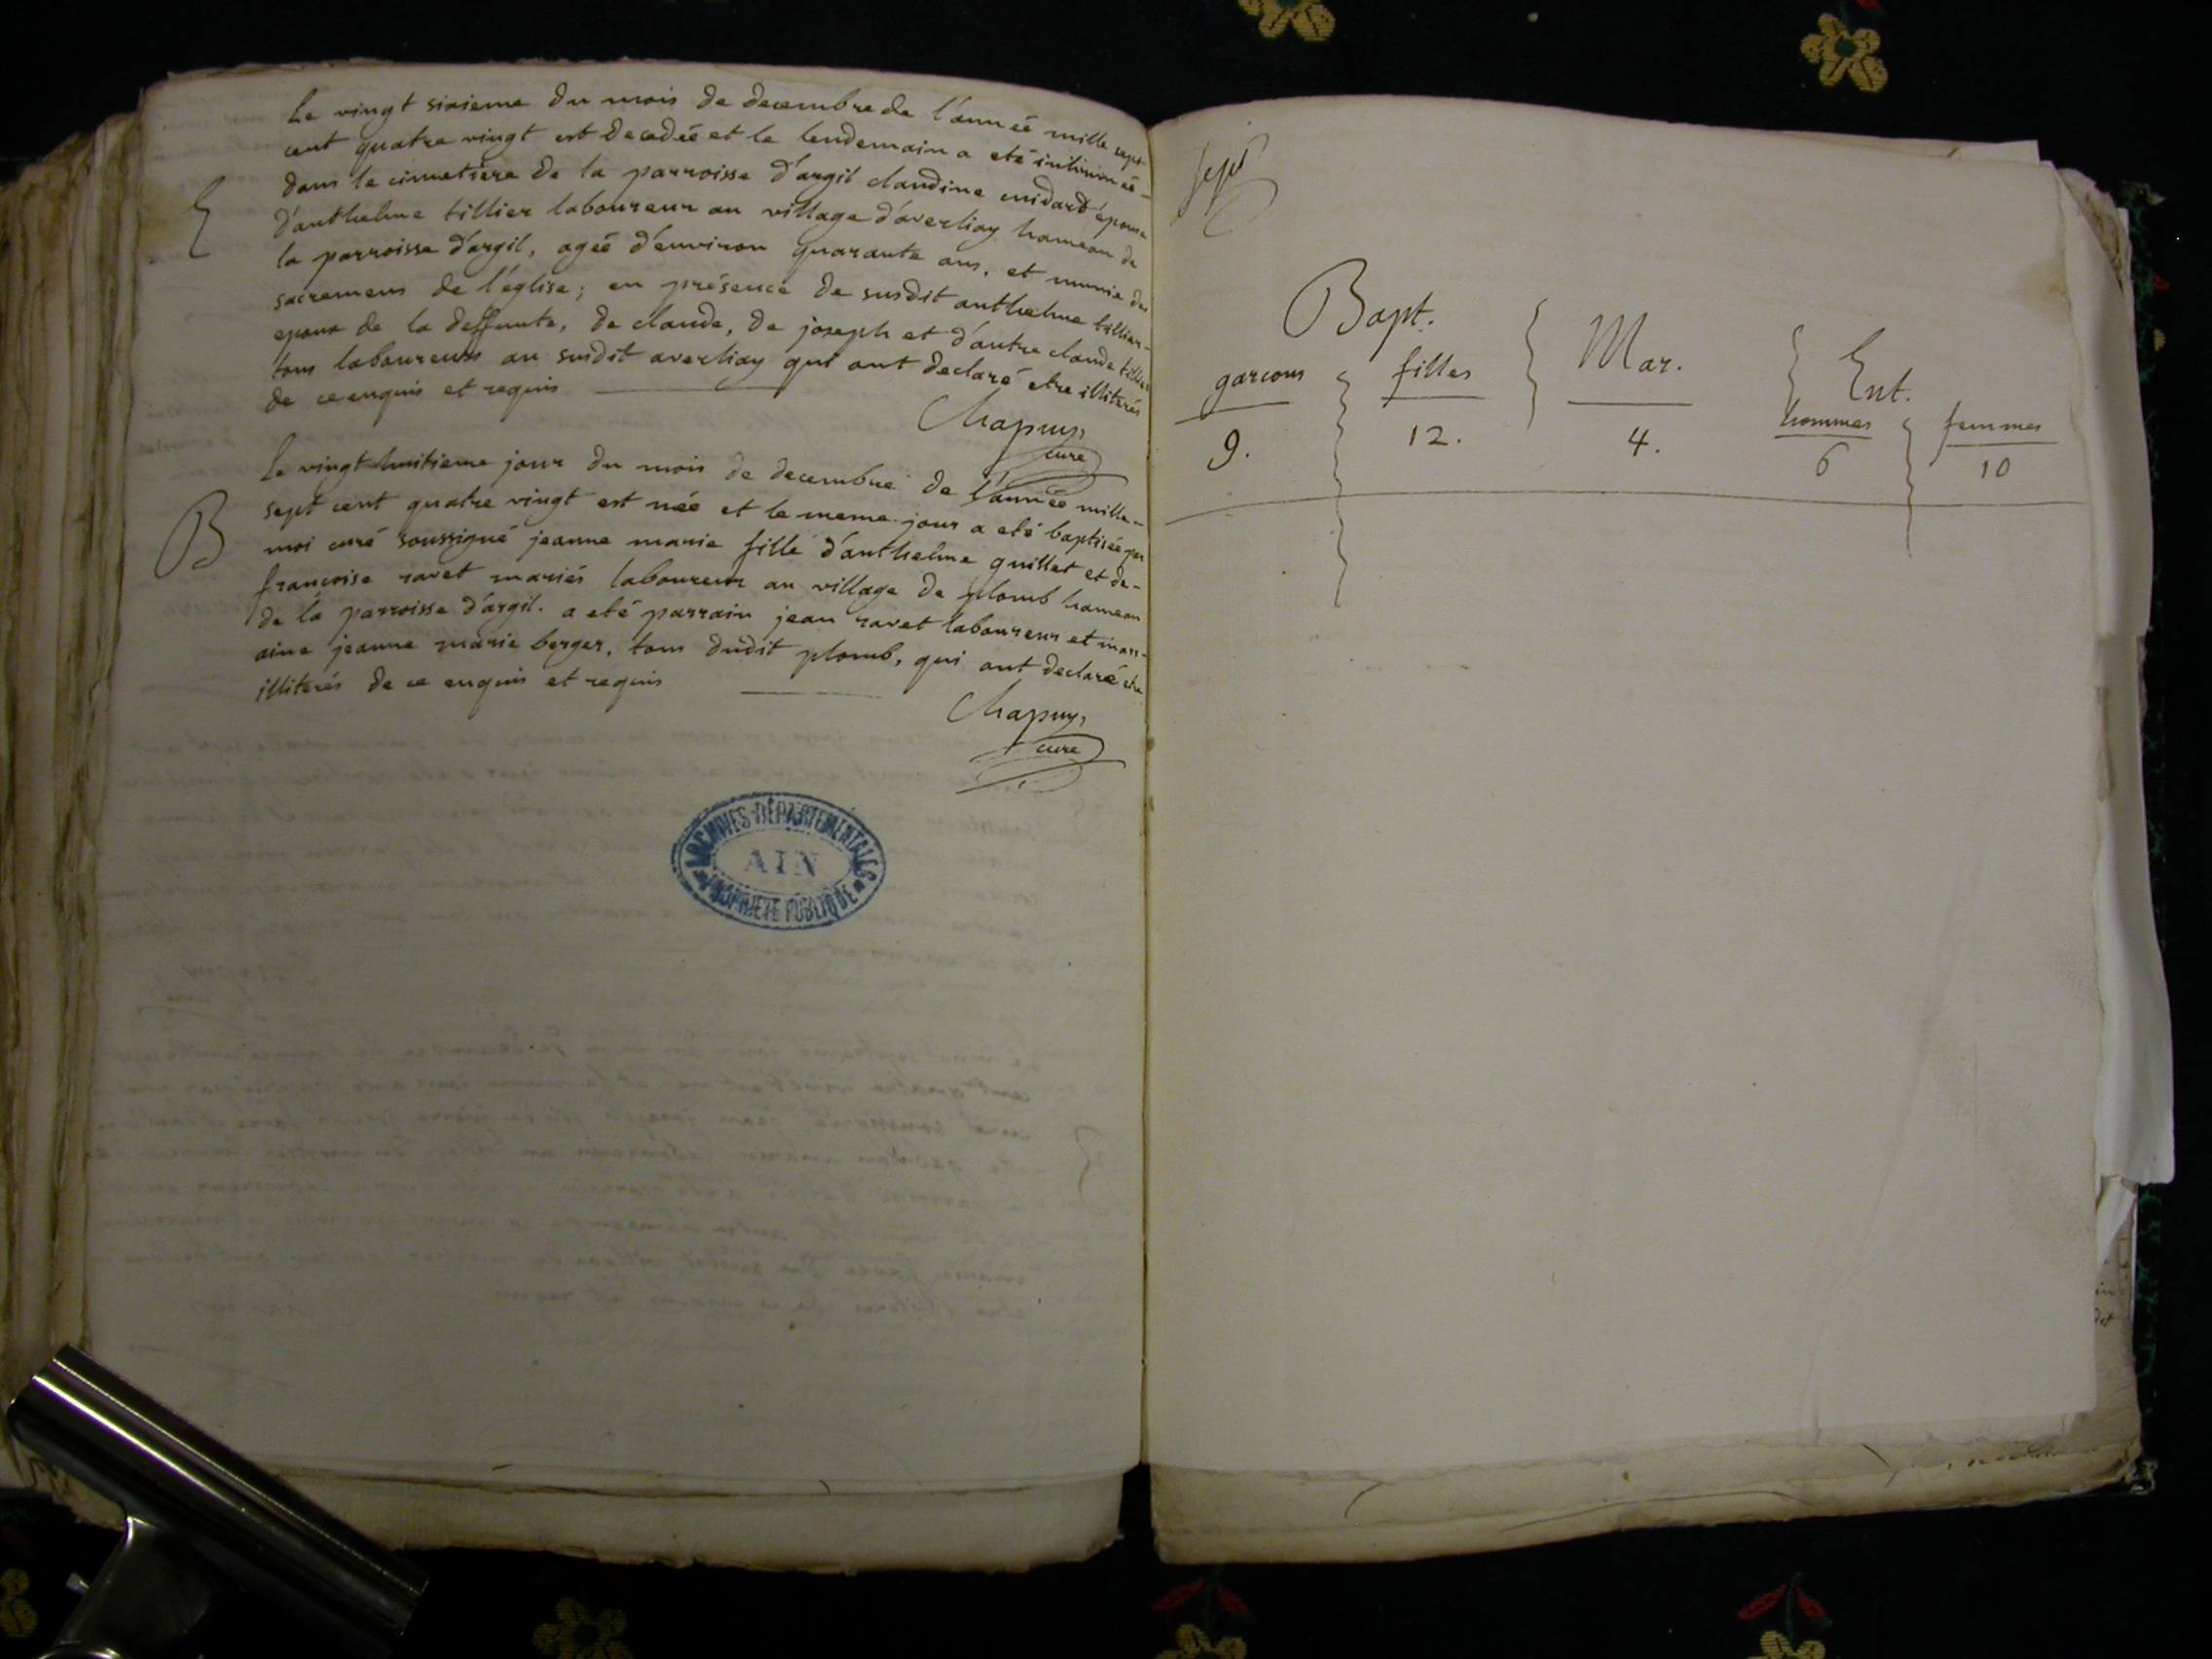 Le vingt sixieme du mois de decembre de l'année mille sept
cent quatre vingt est decedée et le lendemain a eté inhumée
dans le cimetiere de la parroisse d'argil claudine cuidard épouse
E
d'anthelme tillier laboureur au village d'averliay hameau de
la parroisse d'argil, ageé d'environ quarante ans, et munie des
sacremens de l'église; en présence de susdit anthelme tillier
epoux de la deffunte, de claude, de joseph et d'autre claude tillier
tous laboureurs au susdit averliay qui ont declaré etre illiterés
de ce enquis et requis
Chapuy,
curé
Le vingt huitieme jour du mois de decembre de l'année mille-
sept cent quatre vingt est née et le meme jour a eté baptisée par
B
moi curé soussigné jeanne marie fille d'anthelme quillet et de-
françoise ravet mariés laboureur au village de plomb hameau
de la parroisse d'argil. a eté parrain jean ravet laboureur et marr-
aine jeanne marie berger, tous dudit plomb, qui ont declaré etre
illiterés de ce enquis et requis
Chapuy,
curé
ARCHIVES DÉPARTEMENTALES
AIN
PROPRIÉTÉ PUBLIQUE
sept
Bapt. Mar. Ent.
garcons filles hommes femmes
9. 12. 4. 6 10